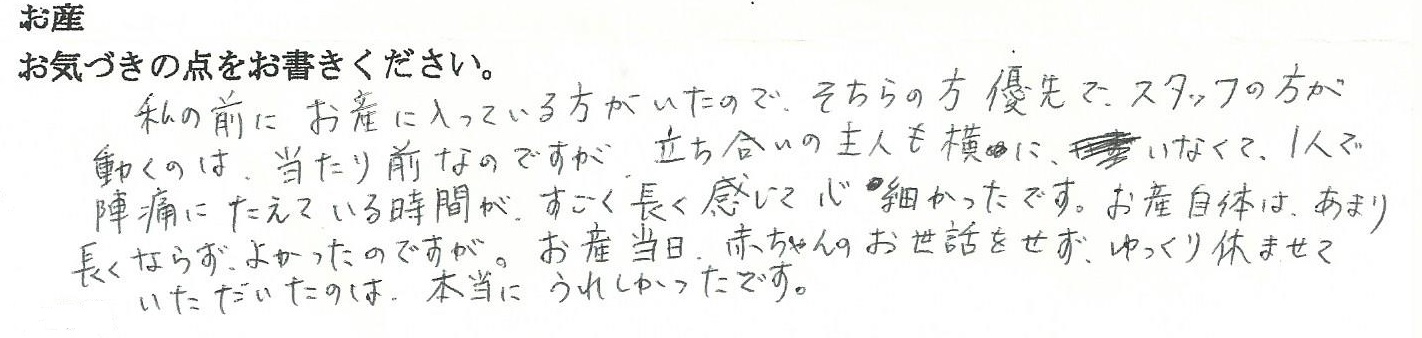 お産
お気づきの点をお書きください。
私の前に お産に入っている方がいたので、そちらの方 優先で、スタッフの方が
動くのは、当たり前なのですが、立ち合いの主人も横に、いなくて、1人で
陣痛に たえている時間が、すごく長く感じて 心細かったです。お産自体は、あまり
長くならず、よかったのですが。お産当日、赤ちゃんのお世話をせず、ゆっくり休ませて
いただいたのは、本当に うれしかったです。